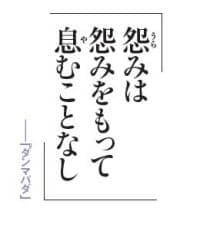 怨みは
怨みをもって
息むことなし
――『ダンマパダ』